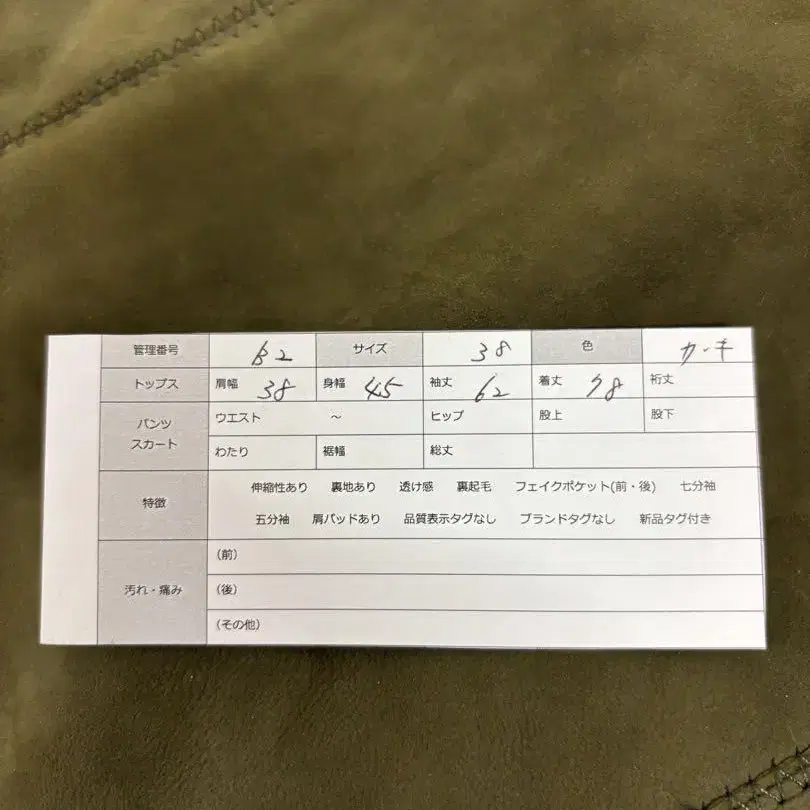 管理番号 B2 サイズ 38 色 カーキ
トップス 肩幅 38 身幅 45 袖丈 62 着丈 78 裄丈
パンツ スカート ウエスト ～ ヒップ 股上 股下
わたり 裾幅 総丈
特徴 伸縮性あり 裏地あり 透け感 裏起毛 フェイクポケット(前・後) 七分袖
五分袖 肩パッドあり 品質表示タグなし ブランドタグなし 新品タグ付き
汚れ・痛み (前)
(後)
(その他)